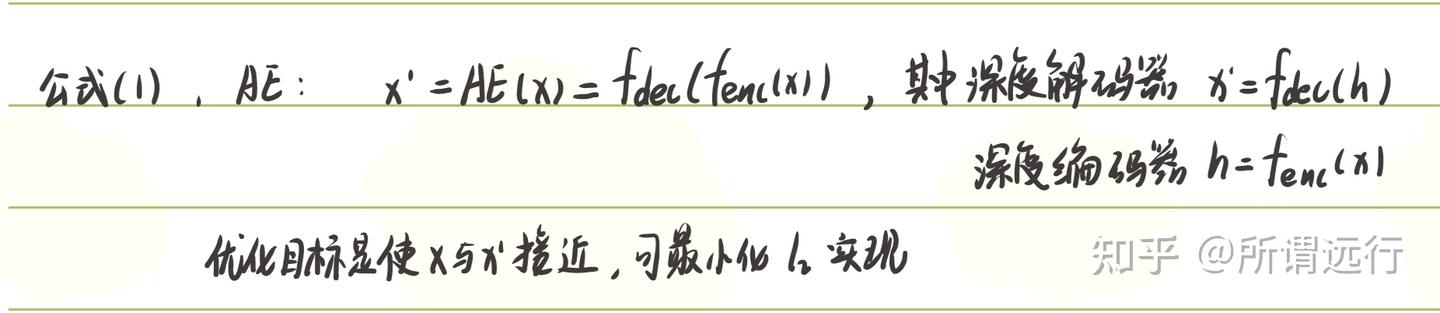 公式(1), AE: x' = AE(x) = fdec(fenc(x)), 其中深度解码器 x' = fdec(h)
深度编码器 h = fenc(x)
优化目标是使x与x'接近,可最小化 l₂ 实现
知乎 @所谓远行